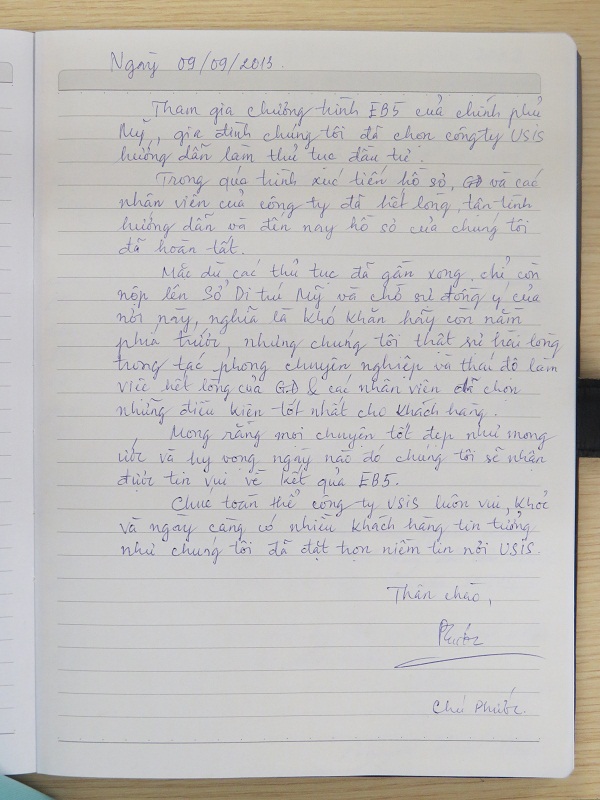 Ngày 09/09/2013.
Tham gia chương trình EB5 của chính phủ
Mỹ, gia đình chúng tôi đã chọn công ty USIS
hướng dẫn làm thủ tục đầu tư.
Trong quá trình xúc tiến hồ sơ, GĐ và các
nhân viên của công ty đã hết lòng, tận tình
hướng dẫn và đến nay hồ sơ của chúng tôi
đã hoàn tất.
Mặc dù các thủ tục đã gần xong, chỉ còn
nộp lên Sở Di trú Mỹ và chờ sự đồng ý của
nơi này, nghĩa là khó khăn hãy còn nằm
phía trước, nhưng chúng tôi thật sự hài lòng
trong tác phong chuyên nghiệp và thái độ làm
việc hết lòng của GĐ & các nhân viên đã chọn
những điều kiện tốt nhất cho khách hàng.
Mong rằng mọi chuyện tốt đẹp như mong
ước và hy vọng ngày nào đó chúng tôi sẽ nhận
được tin vui về kết quả EB5.
Chúc toàn thể công ty USIS luôn vui, khỏe
và ngày càng có nhiều khách hàng tin tưởng
như chúng tôi đã đặt trọn niềm tin nơi USIS.
Thân chào,
Phước
Chú Phước.